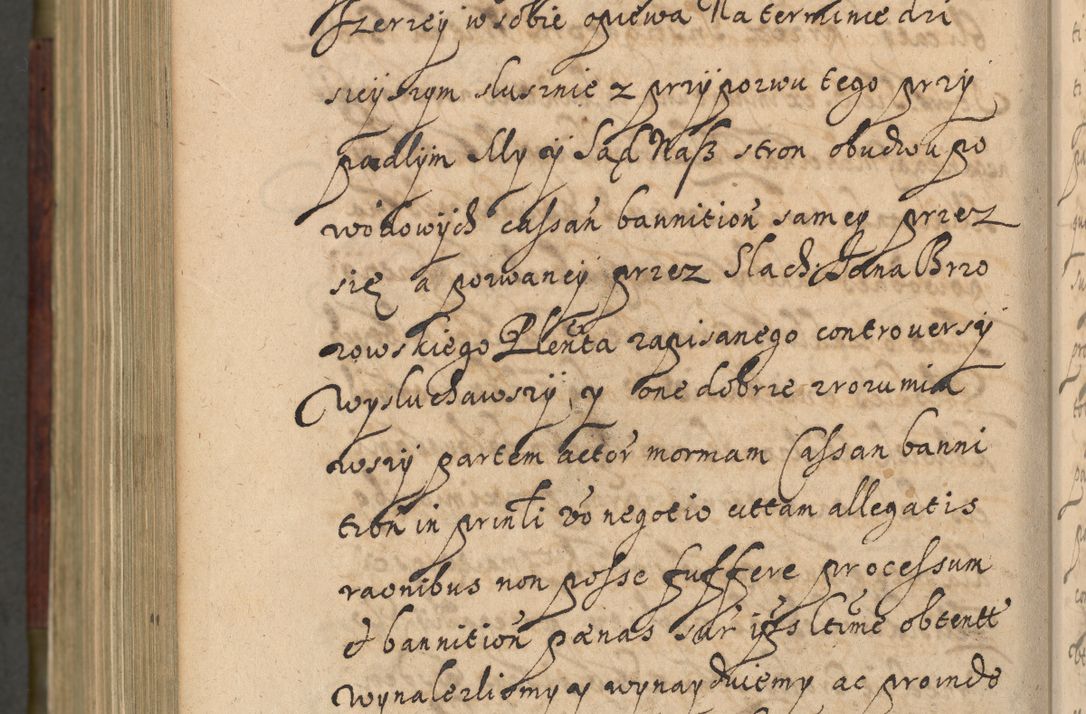 szerzey w sobie opiewa Na terminie dzi
sieyszym słusznie z przypozwu tego przy
padłym My y Sąd Nasz stron obudwu po
wodowych cassaōn bannitionū samey przez
się a pozwaney przez Slach: Jana Brzo
zowskiego Plenta zapisanego controversy
wysłuchawszy y one dobrze zrozumia
wszy partem actor mornam Cassan banni
tion in prinli vo negotio cuttam allegatis
raonibus non posse suffere processum
et bannition pænas sur ips ltime obtentt
wynalezlismy y wynayduiemy ac proinde